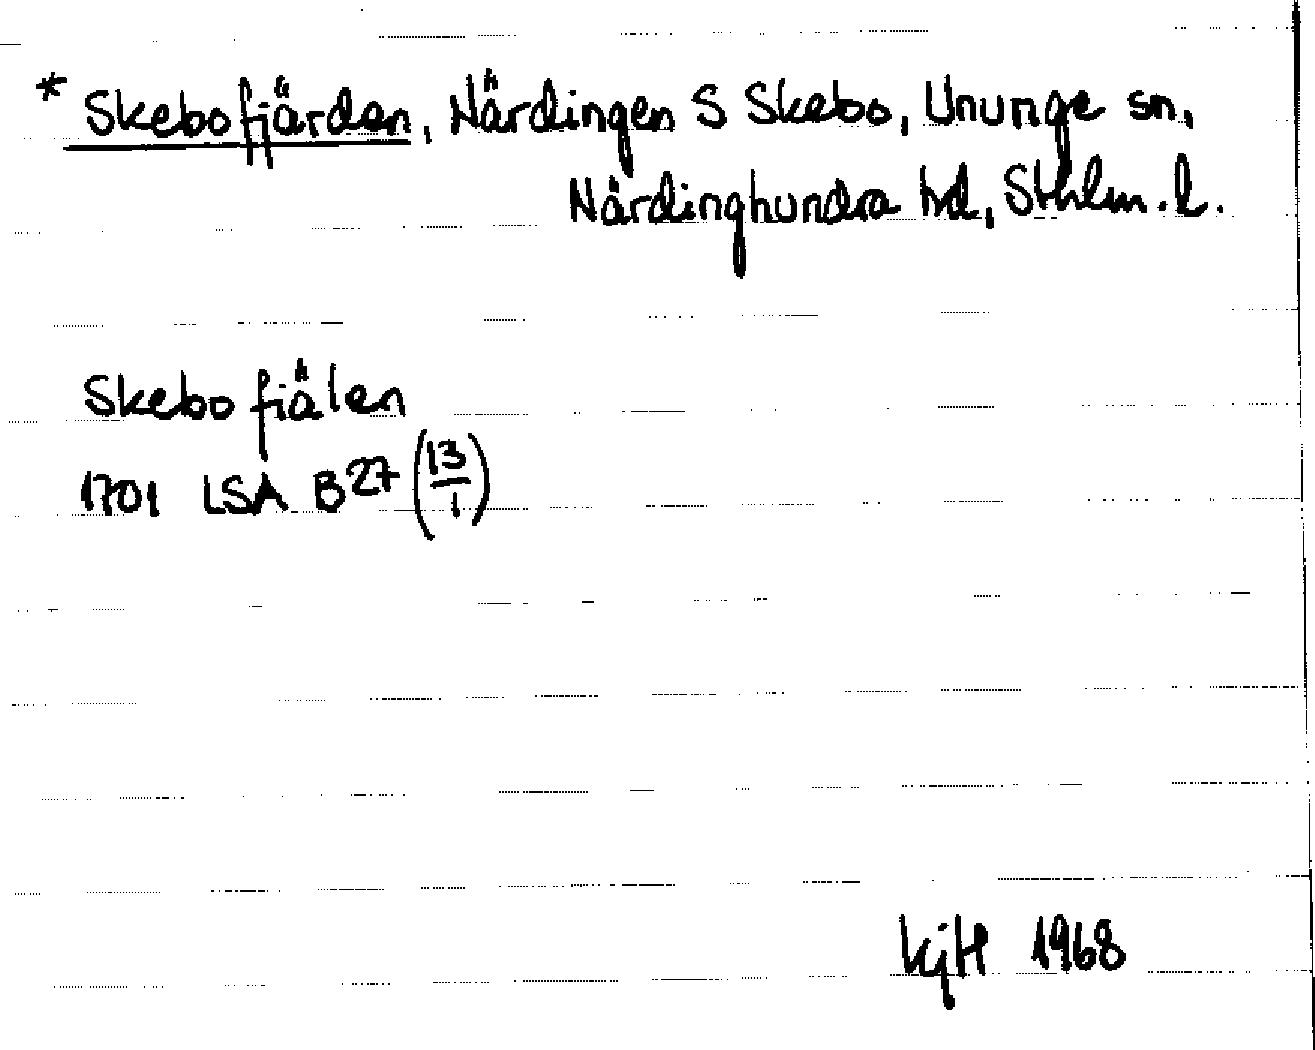 * Skebofjärden, Närdingen S Skebo, Ununge sn,
Närdinghundra hd, Sthlm. l.
Skebo fiälen
1701 LSA B27 (13/1)
KjH 1968